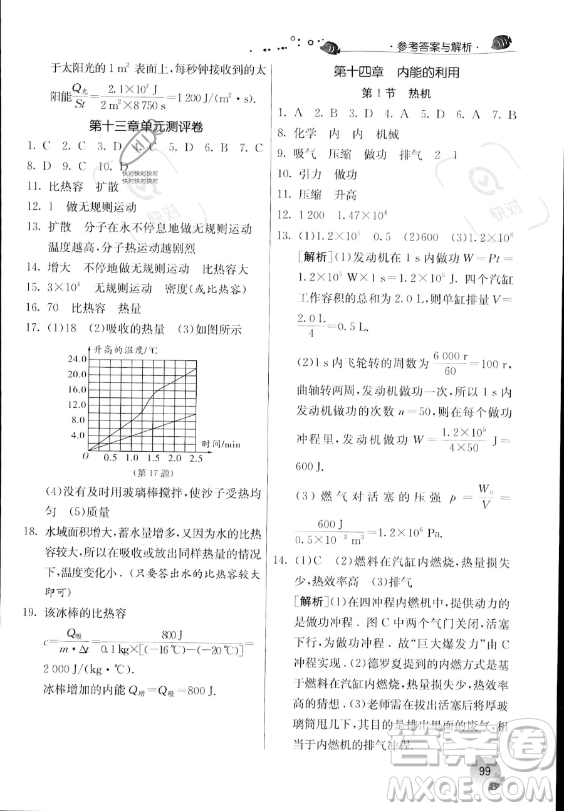 ·参考答案与解析·
于太阳光的 1 m² 表面积,每秒钟接收到的太
阳能 Q光/St = 2.1×10⁷ J/(2 m²×8 750 s) = 1 200 J/(m²·s).
第十三章单元测评卷
1. C 2. C 3. D 4. C 5. C 6. B 7. C
8. D 9. C 10. D
11. 比热容 扩散
12. 1 做无规则运动
13. 扩散 分子在永不停息地做无规则运动
温度越高,分子热运动越剧烈
14. 增大 不停地做无规则运动 比热容
15. 3×10⁴ 无规则运动 密度(或比热容)
16. 70 比热容 热量
17. (1)18 (2)吸收的热量 (3)如图所示
升高的温度/℃
24.0
20.0
16.0
12.0
8.0
4.0
0 0.5 1.0 1.5 2.0 2.5 时间/min
(第 17 题)
(4)没有及时用玻璃棒搅拌,使沙子受热均
匀 (5)质量
18. 水域面积增大,蓄水量增多,又因为水的比热
容较大,所以在吸收或放出热量相同的情况
下,温度变化小.(只要答出水的比热容较大
即可)
19. 该冰棒的比热容
c = Q吸/(m·Δt) = 800 J/(0.1 kg×[(-16 ℃)-(-20 ℃)]) =
2 000 J/(kg·℃).
冰棒增加的内能 Q增=Q吸=800 J.
第十四章 内能的利用
第 1 节 热机
1. C 2. A 3. B 4. B 5. A 6. D 7. B
8. 化学 内 内 机械
9. 吸气 压缩 做功 排气 2 1
10. 引力 做功
11. 压缩 升高
12. 1 200 1.47×10⁴
13. (1)1.2×10⁵ 0.5 (2)600 (3)1.2×10⁶
[解析](1)发动机在 1 s 内做功 W=Pt=
1.2×10⁵ W×1 s=1.2×10⁵ J. 四个汽缸
工作容积的总和为 2.0 L,单缸排量 V=
2.0 L/4 = 0.5 L.
(2)1 s 内飞轮转的周数为 6 000 r/60 = 100 r,
曲轴转两周,发动机做功一次,所以 1 s 内
发动机做功的次数 n=50,发动机在一个做功
冲程里,发动机做功 W = 1.2×10⁵/(4×50) J =
600 J.
(3) 燃气对活塞的压强 p = W₀/V =
600 J/(0.5×10⁻³ m³) = 1.2×10⁶ Pa.
14. (1)C (2)燃料在汽缸内燃烧,热量损失
少,热效率高 (3)排气
[解析](1)在四冲程内燃机中,做功
冲程里,图 C 中两个气门关闭,活塞
下行,为做功冲程. 故“巨大爆发力”由 C
冲程实现. (2)德罗夏提出的内燃方式,
是让燃料在汽缸内燃烧,热量损失少,热效
率高的猜想. (3)老师需在拔出活塞后将玻
璃筒甩几下,目的是排出里面的废气,相
当于内燃机的排气冲程.
99
快对
快对快对快对
答案圈
MXQE.COM